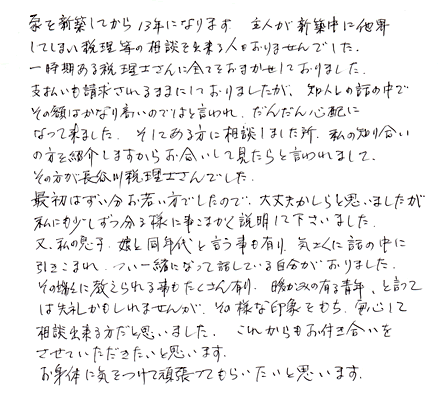 家を新築してから13年になります 主人が新築中に他界
してしまい税理等の相談を出来る人もおりませんでした。
一時期ある税理士さんに全てをおまかせしておりました。
支払いも請求されるままにしておりましたが、知人との話の中で
その額はかなり高いのではと言われ、だんだん心配に
なって来ました。そしてある方に相談しました所、私の知り合い
の方を紹介しますからお会いして見たらと言われまして、
その方が長谷川税理士さんでした。
最初はずい分お若い方でしたので、大丈夫かしらと思いましたが
私にも少しずつ分る様に事こまかく説明して下さいました。
又、私の息子、娘と同年代と言う事も有り、気さくに話の中に
引きこまれ、つい一緒になって話している自分がおりました。
その様に教えられる事もたくさん有り、暖かみの有る青年、と言って
は失礼かもしれませんが、その様な印象をもち、安心して
相談出来る方だと思いました。 これからもお付き合いを
させていただきたいと思います。
お身体に気をつけて頑張ってもらいたいと思います。